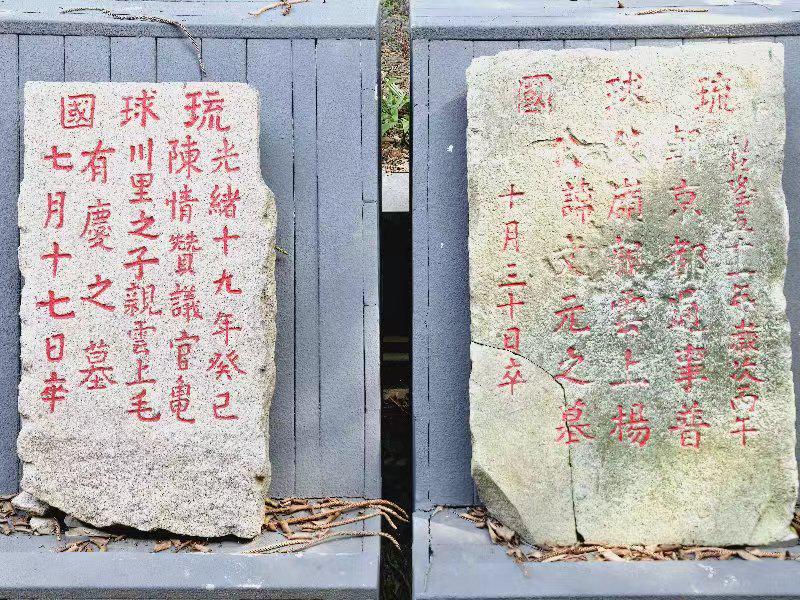 琉球國
光緒十九年癸巳
陳情贊議官亀
川里之子親雲上毛
有慶之墓
七月十七日卒
琉球國
乾隆五十一年歲次丙午
朝京都通事普
親雲上楊
公諱文元之墓
十月三十日卒